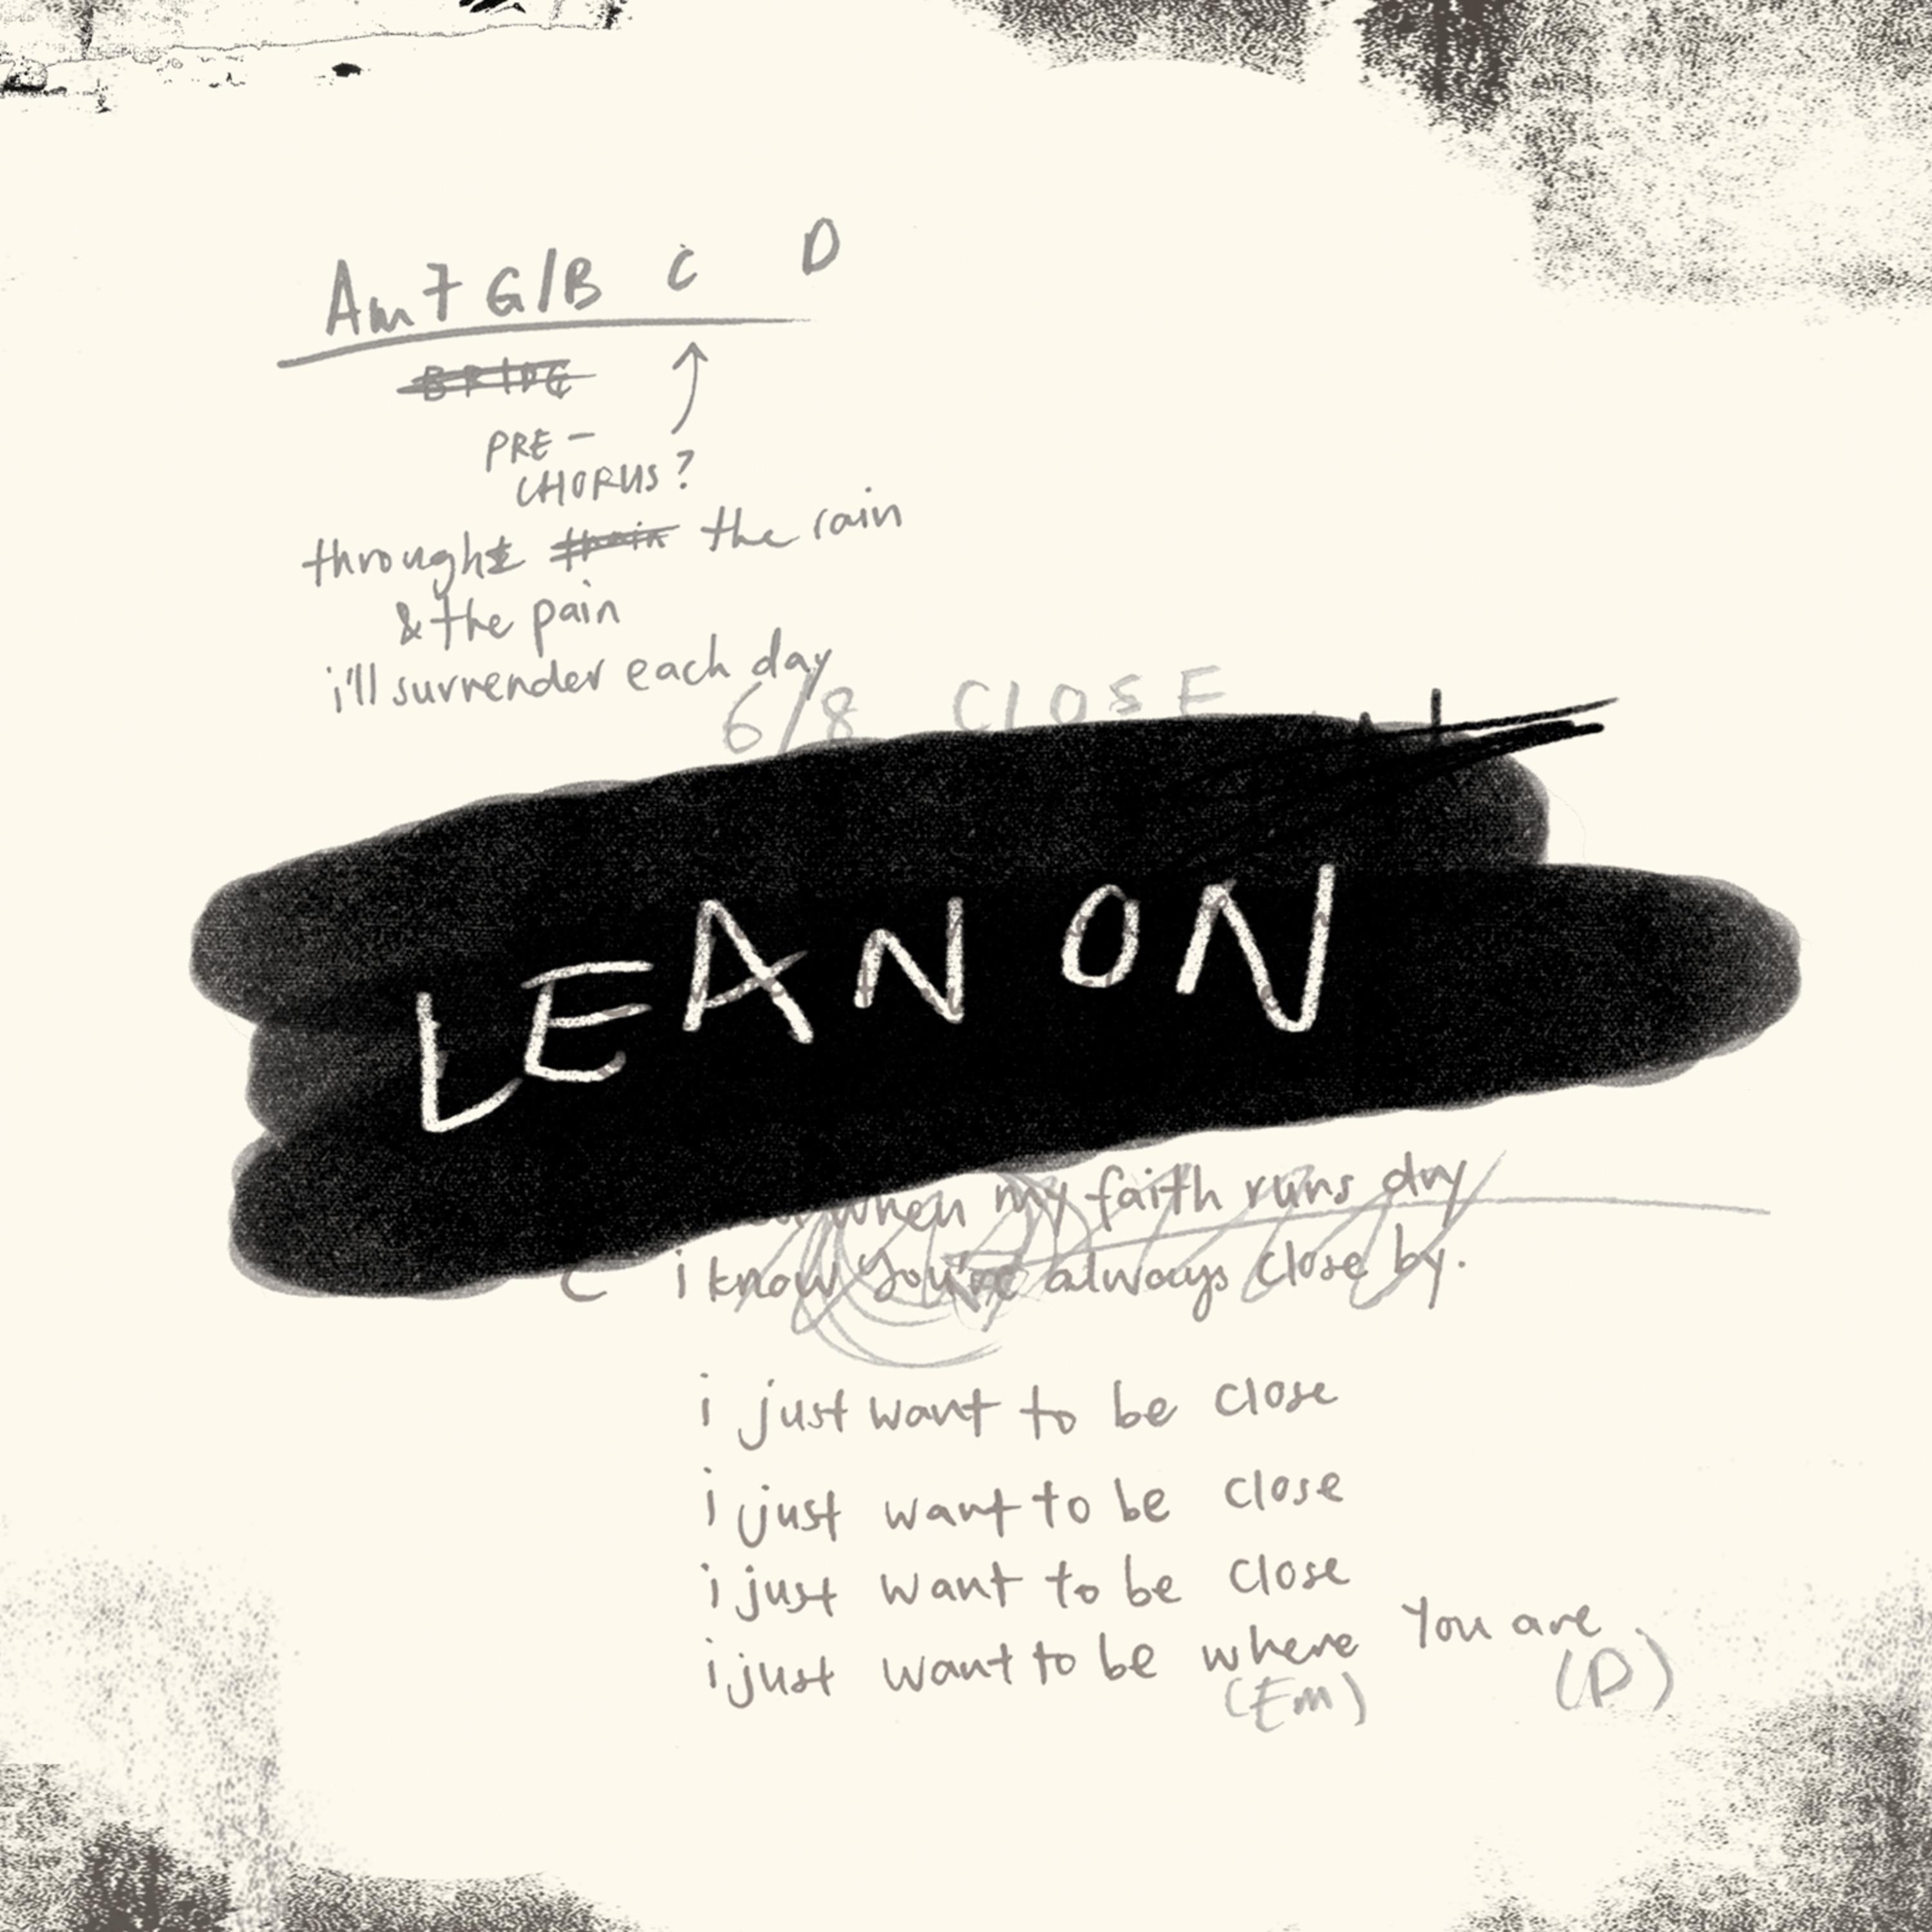 Am7 G/B C D
BRIDG
PRE-
CHORUS?
through the rain
& the pain
i'll surrender each day
6/8 CLOSE
LEAN ON
when my faith runs dry
C i know You're always close by.
i just want to be close
i just want to be close
i just want to be close
i just want to be where You are.
(Em) (D)